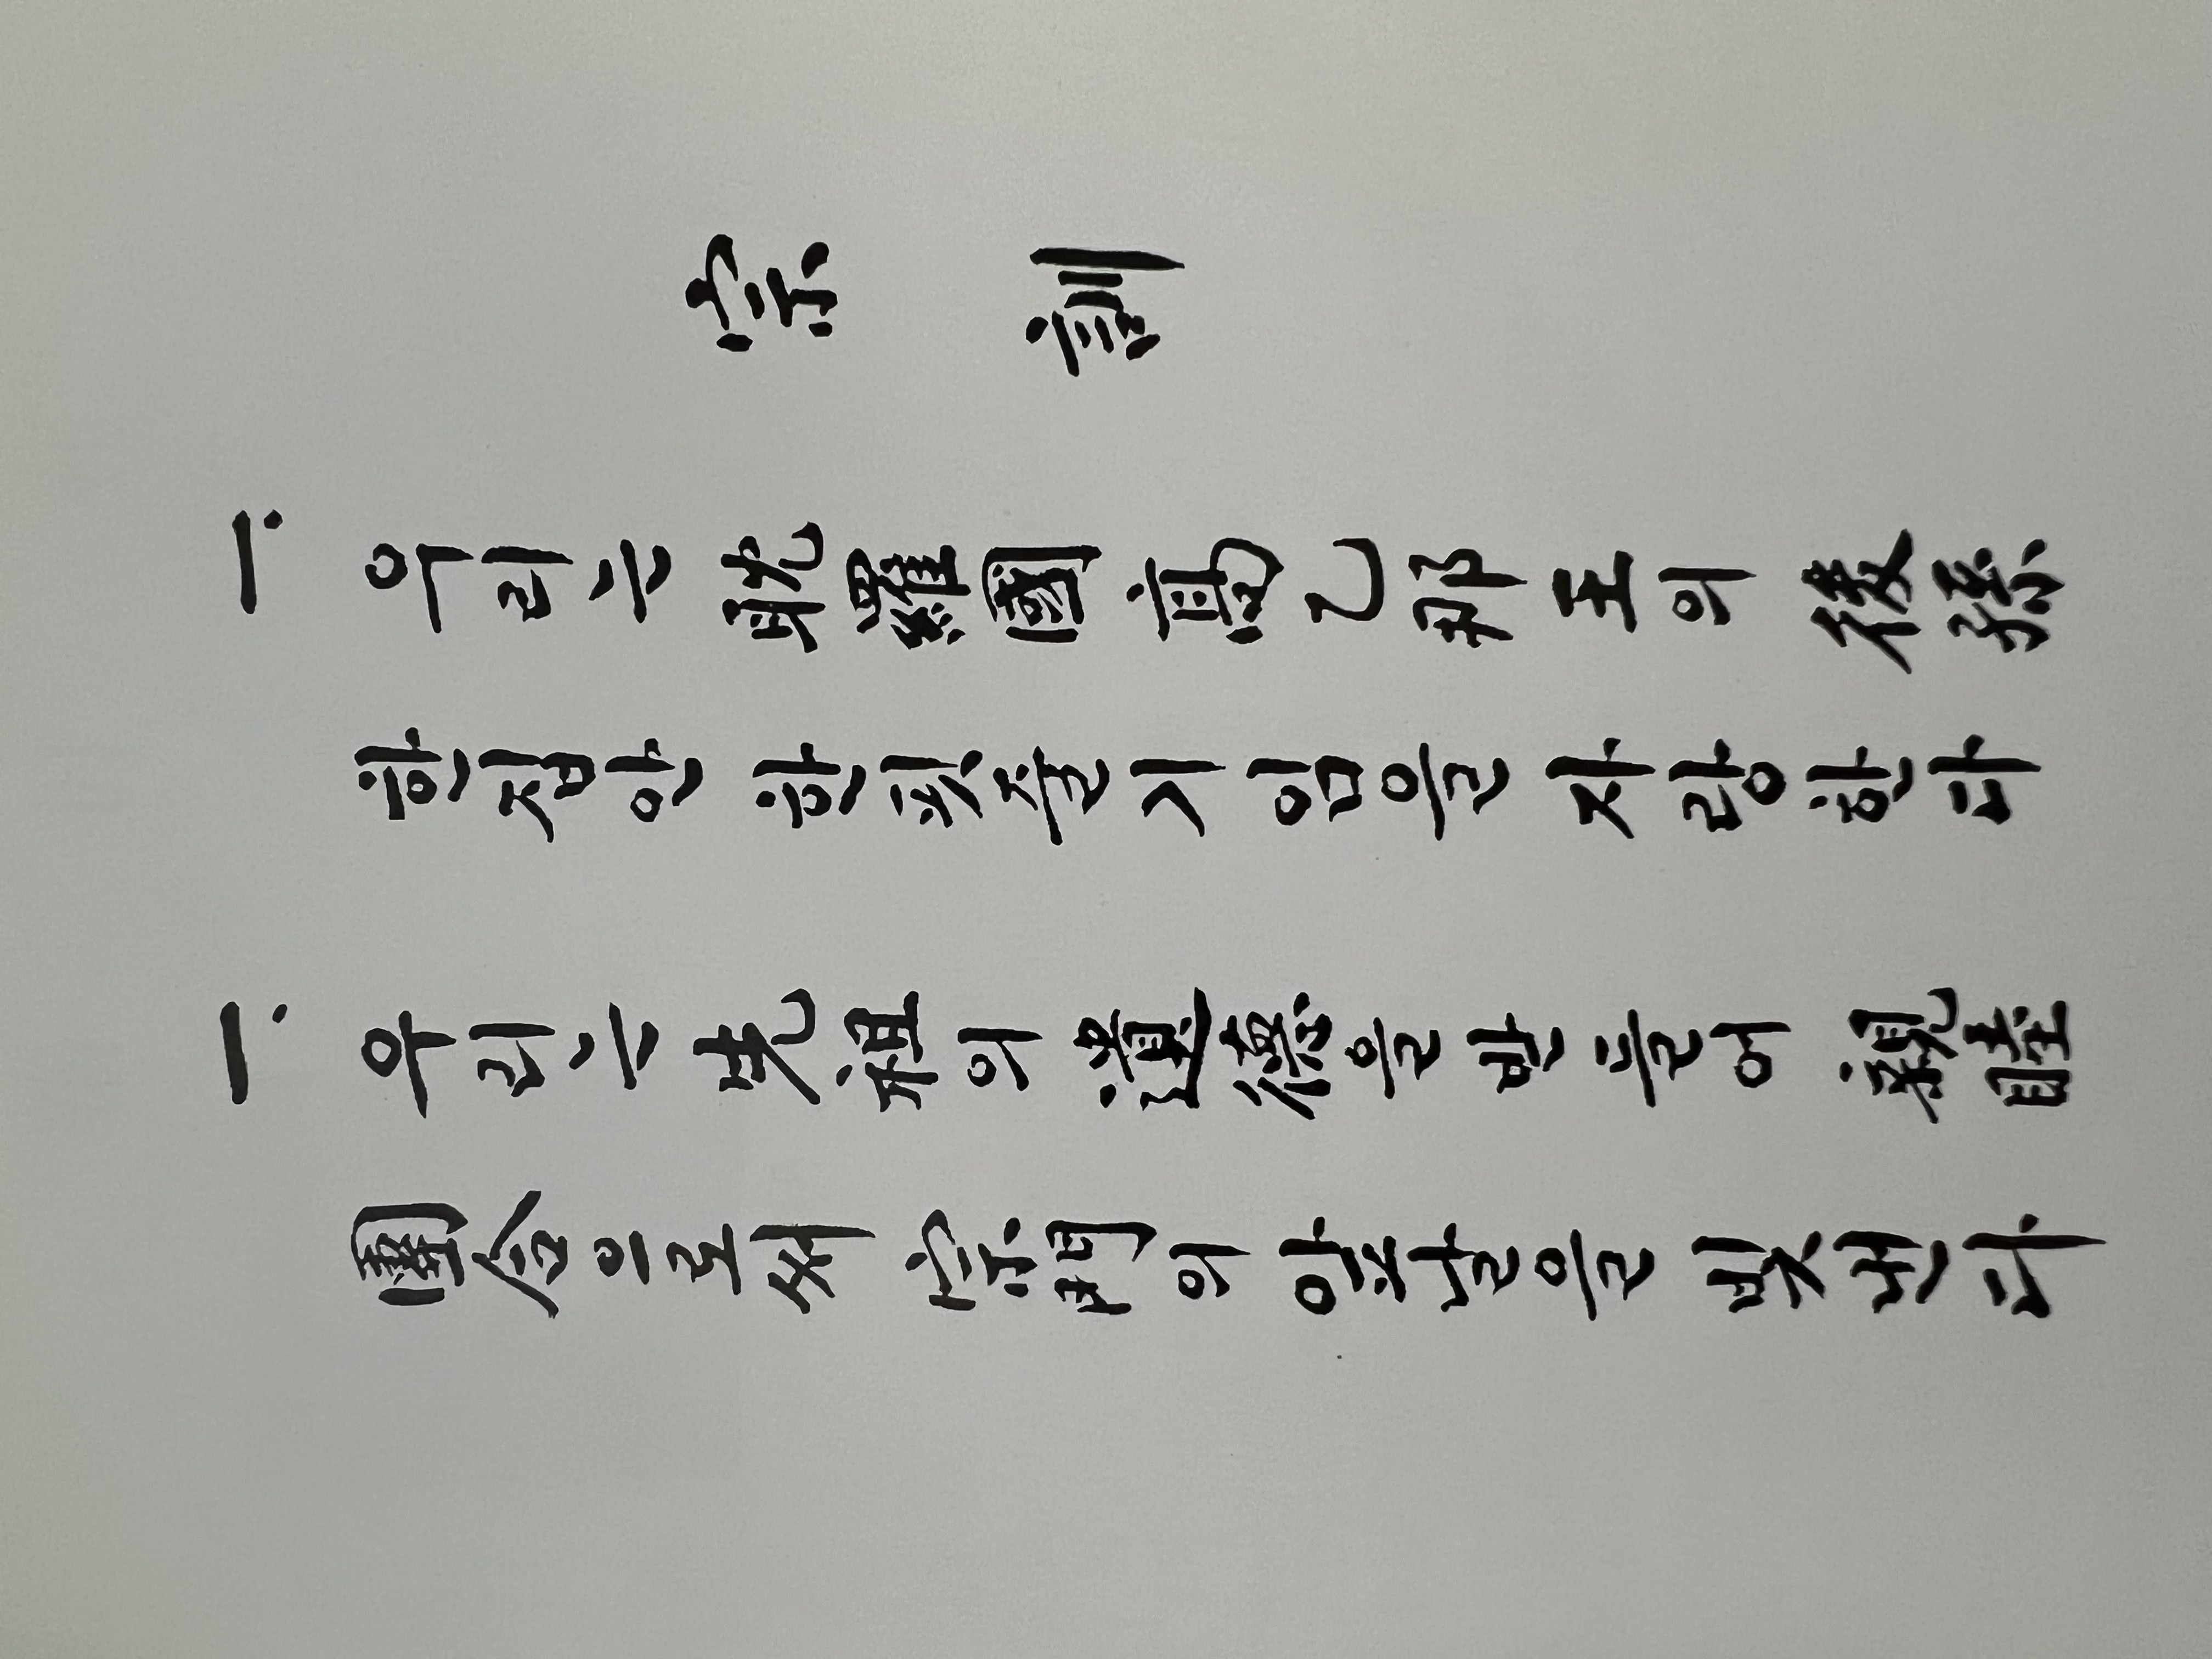 宗訓
一. 우리는 耽羅國 高乙那王의 後孫
한집안 한핏줄기임을 자랑한다
一. 우리는 先祖의 遺德을 받들어 親睦
團合으로써 宗門의 앞날을 빛낸다